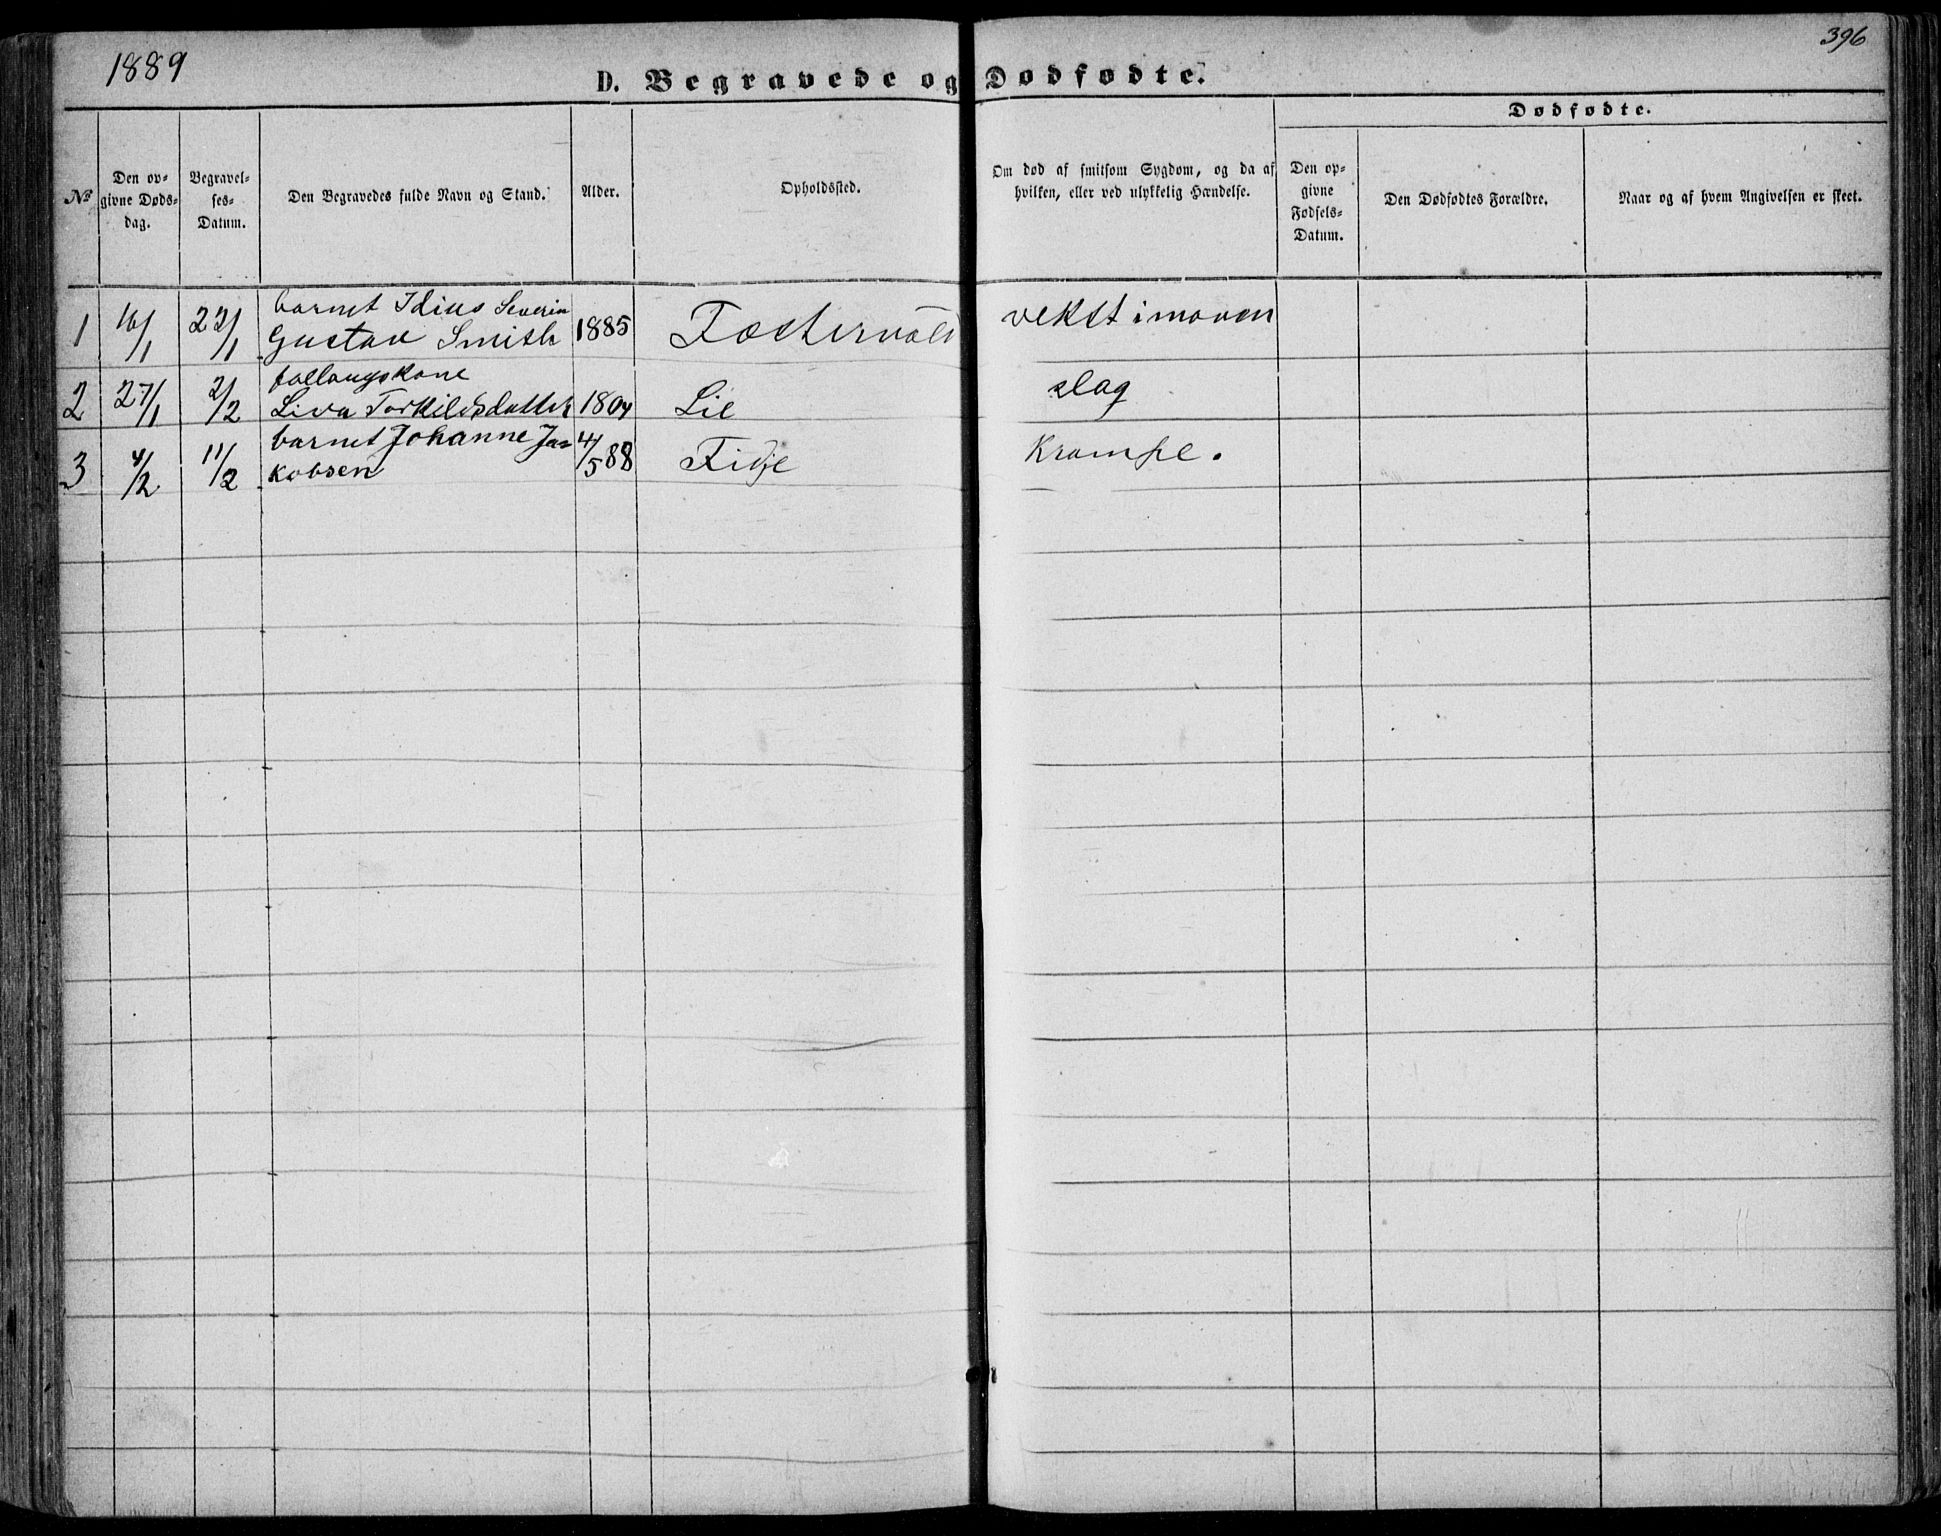 1889
396
D. Begravede og Dødfødte.
Dødfødte.
№
Den op-
givne Døds-
dag.
Begravel-
ses-
Datum.
Den Begravedes fulde Navn og Stand.
Alder.
Opholdssted.
Om død af smitsom Sygdom, og da af
hvilken, eller ved ulykkelig Hændelse.
Den op-
givne
Fødsels-
Datum.
Den Dødfødtes Forældre.
Naar og af hvem Angivelsen er skeet.
1 16/1 22/1 barnet Idius Severin
Gustav Smith 1885 Fostervold vekst i maven
2 27/1 2/2 follaugskone
Liva Torkildsdatter 1804 Lie slag
3 4/2 11/2 barnet Johanne Ja=
kobsen 4/5 88 Fidje Krampe.